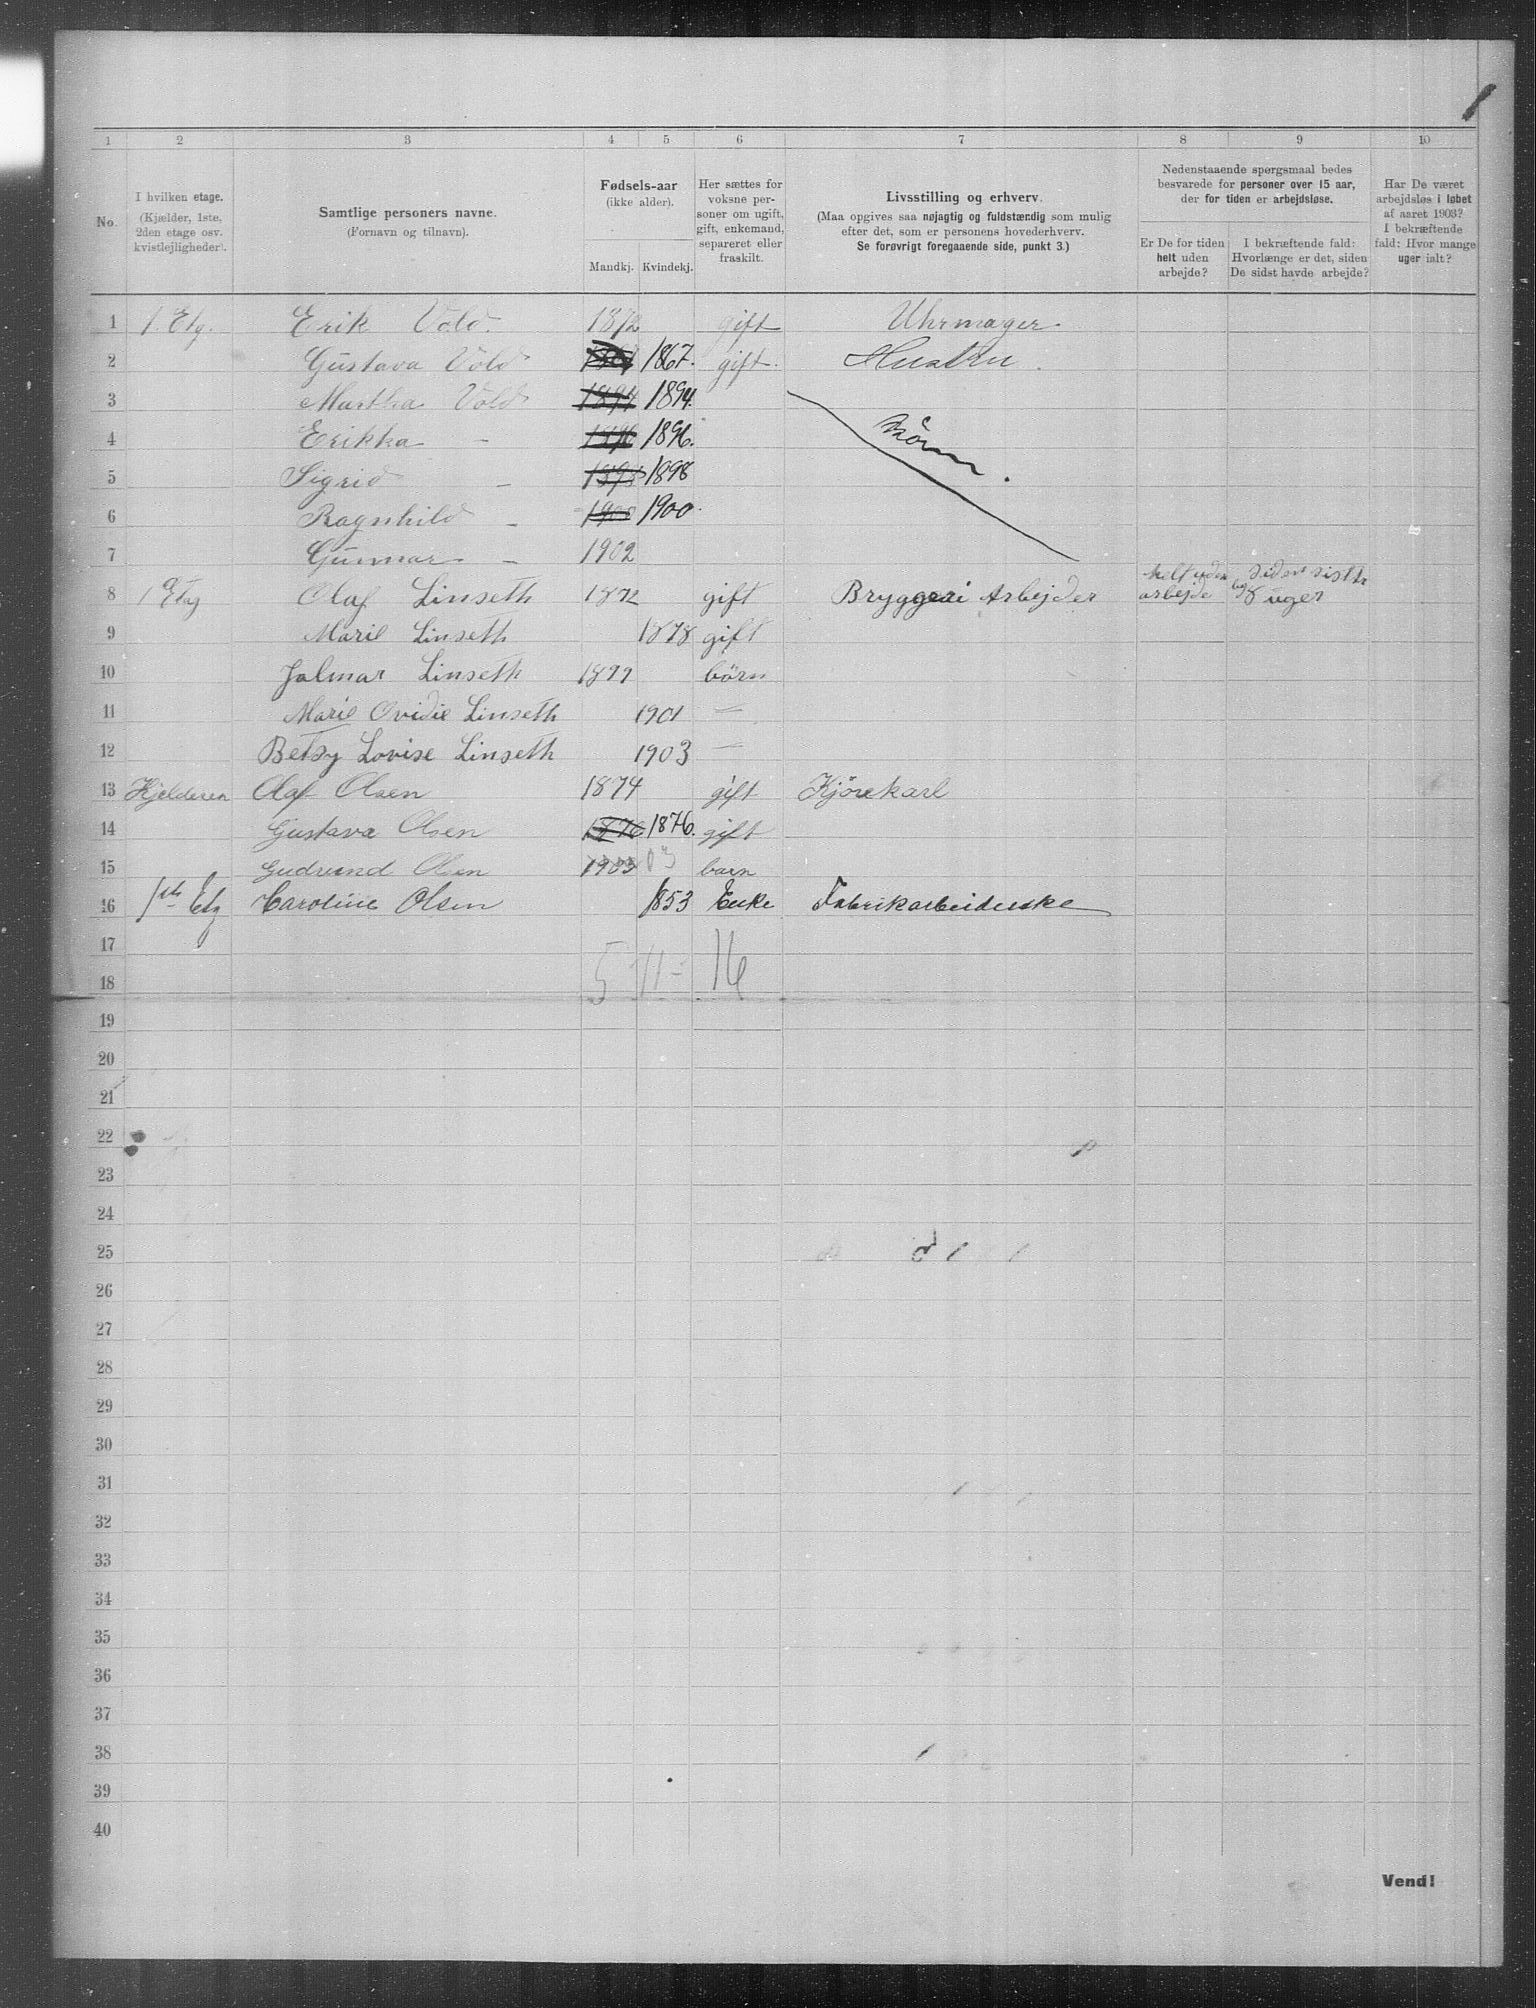 1
1 2 3 4 5 6 7 8 9 10
No.
I hvilken etage.
(Kjælder, 1ste,
2den etage osv.
kvistlejligheder).
Samtlige personers navne.
(Fornavn og tilnavn).
Fødsels-aar
(ikke alder).
Mandkj. Kvindekj.
Her sættes for
voksne per-
soner om ugift,
gift, enkemand,
separeret eller
fraskilt.
Livsstilling og erhverv.
(Maa opgives saa nøjagtig og fuldstændig som mulig
efter det, som er personens hovederhverv.
Se forøvrigt foregaaende side, punkt 3.)
Nedenstaaende spørgsmaal bedes
besvarede for personer over 15 aar,
der for tiden er arbejdsløse.
Er De for tiden
helt uden
arbejde?
I bekræftende fald:
Hvorlænge er det, siden
De sidst havde arbejde?
Har De været
arbejdsløs i løbet
af aaret 1903?
I bekræftende
fald: Hvor mange
uger ialt?
1 1. Etg. Erik Vold. 1872 gift Uhrmager.
2 Gustava Vold 1867. gift. Hustru.
3 Martha Vold 1894 1894.
4 Erikka - 1896 1896. Börn.
5 Sigrid - 1898 1898
6 Ragnhild - 1900 1900.
7 Gunnar - 1902
8 1 Etag Olaf Linseth 1872 gift Bryggeri Arbejder helt uden arbejde siden sisth 8 uger
9 Marie Linseth 1878 gift
10 Jalmar Linseth 1899 börn
11 Marie Ovidie Linseth 1901 —
12 Betsy Lovise Linseth 1903 —
13 Kjelderen Olaf Olsen 1874 gift Kjörekarl
14 Gustava Olsen 1876 1876. gift
15 Gudrund Olsen 1903 03 barn
16 1ste Etg Caroline Olsen 1853 Enke Fabrikarbeiderske
17
18 5 - 11 - 16
19
20
21
22
23
24
25
26
27
28
29
30
31
32
33
34
35
36
37
38
39
40
Vend!